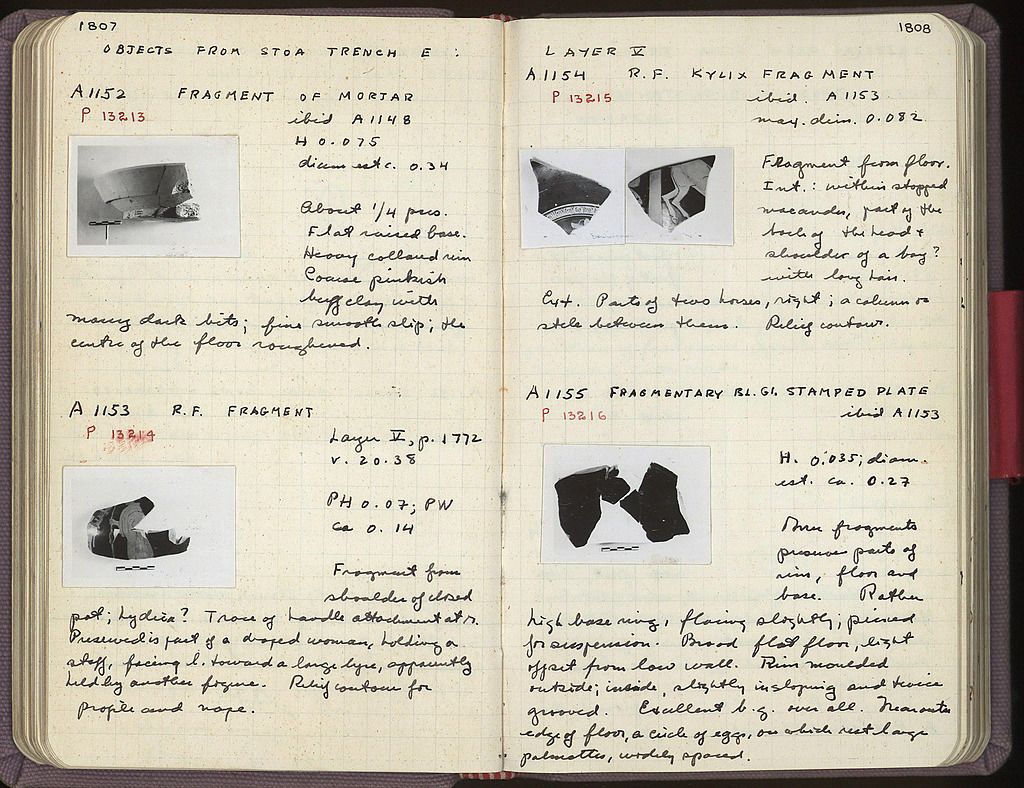 1807
OBJECTS FROM STOA TRENCH E :
A 1152 FRAGMENT OF MORTAR
P 13213
ibid A 1148
H 0.075
diam est c. 0.34
About 1/4 pres.
Flat raised base.
Heavy collared rim
Coarse pinkish
buff clay with
many dark bits; fine smooth slip; the
centre of the floor roughened.
A 1153 R.F. FRAGMENT
P 13214
Layer V, p. 1772
v. 20.38
PH 0.07; PW
ca 0.14
Fragment from
shoulder of closed
pot; hydria? Trace of handle attachment at r.
Preserved is part of a draped woman, holding a
staff, facing l. toward a large lyre, apparently
held by another figure. Relief contour for
profile and nape.
1808
LAYER V
A 1154 R.F. KYLIX FRAGMENT
P 13215
ibid. A 1153
max. dim. 0.082
Fragment from floor.
Int.: within stopped
maeander, part of the
back of the head &
shoulder of a boy?
with long hair.
Ext. Parts of two horses, right; a column or
stele between them. Relief contour.
A 1155 FRAGMENTARY BL. GL. STAMPED PLATE
P 13216
ibid A 1153
H. 0.035; diam.
est. ca. 0.27
fragments
preserve parts of
rim, floor and
base. Rather
high base ring, flaring slightly; pierced
for suspension. Broad flat floor, light
offset from low wall. Rim moulded
outside; inside, slightly insloping and twice
grooved. Excellent b.g. over all. Near outer
edge of floor, a circle of eggs, on which rest large
palmettes, widely spaced.